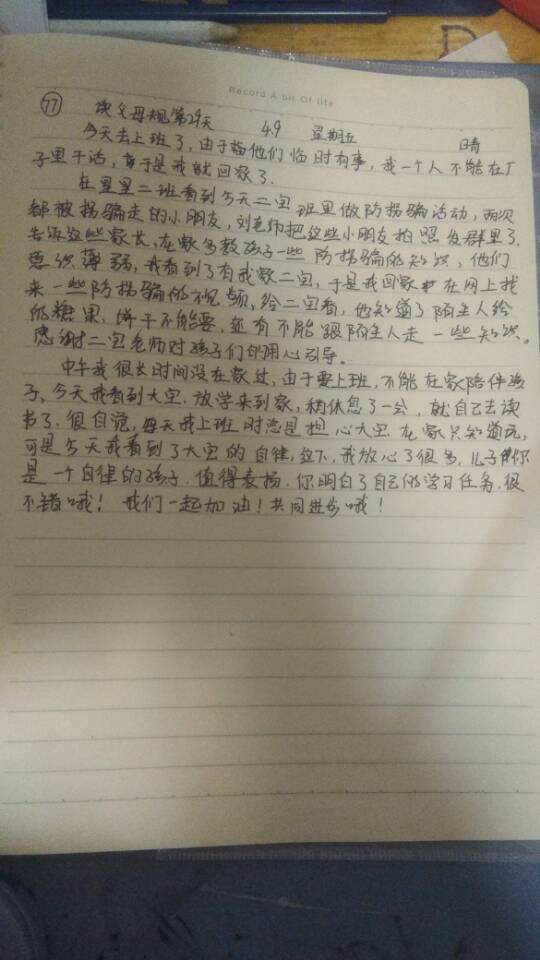 Record A bit Of life
77 读父母规第29天 4.9 星期五 晴
今天去上班了,由于临他们临时有事,我一个人不能在厂
子里干活,于是我就回家了。
在里里二班看到今天二宝班里做防拐骗活动,两次
都被拐骗走的小朋友,刘老师把这些小朋友拍照发群里了。
告诉这些家长,在家多教孩子一些防拐骗的知识,他们
意识薄弱,我看到了有我家二宝,于是我回家在网上找
来一些防拐骗的视频,给二宝看,他知道了陌生人给
的糖果、饼干不能要,还有不能跟陌生人走一些知识。
感谢二宝老师对孩子们的用心引导。
中午我很长时间没在家过,由于要上班,不能在家陪伴孩
子、今天我看到大宝.放学来到家,稍休息了一会,就自己去读
书了.很自觉,每天我上班时总是担心大宝在家只知道玩,
可是今天我看到了大宝的自律,我放心了很多,儿子你
是一个自律的孩子.值得表扬.你明白了自己的学习任务.很
不错哦!我们一起加油!共同进步哦!